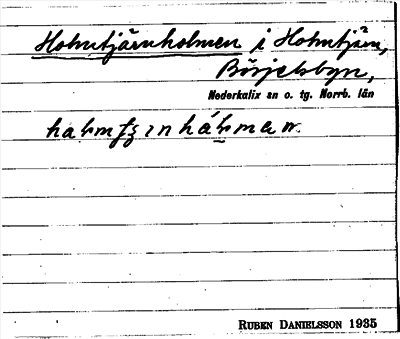 Holmtjärnholmen i Holmtjärn,
Börjelsbyn,
Nederkalix sn o. tg. Norrb. län
RUBEN DANIELSSON 1935